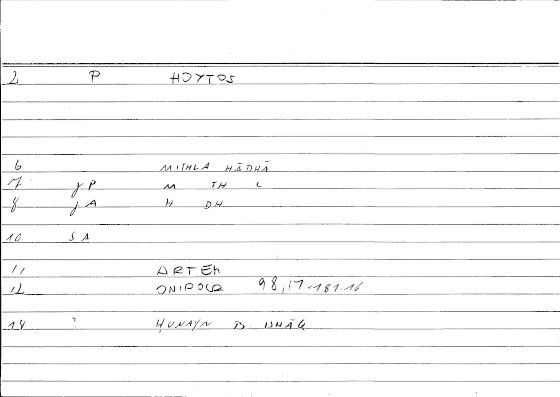 2 P HOYTOS
6 MITHLA HĀDHĀ
7 gP M TH L
8 gA H DH
10 SA
11 ARTEM
12 ONIROCR 98,17-181.16
14 ? HUNAYN B ISHĀQ